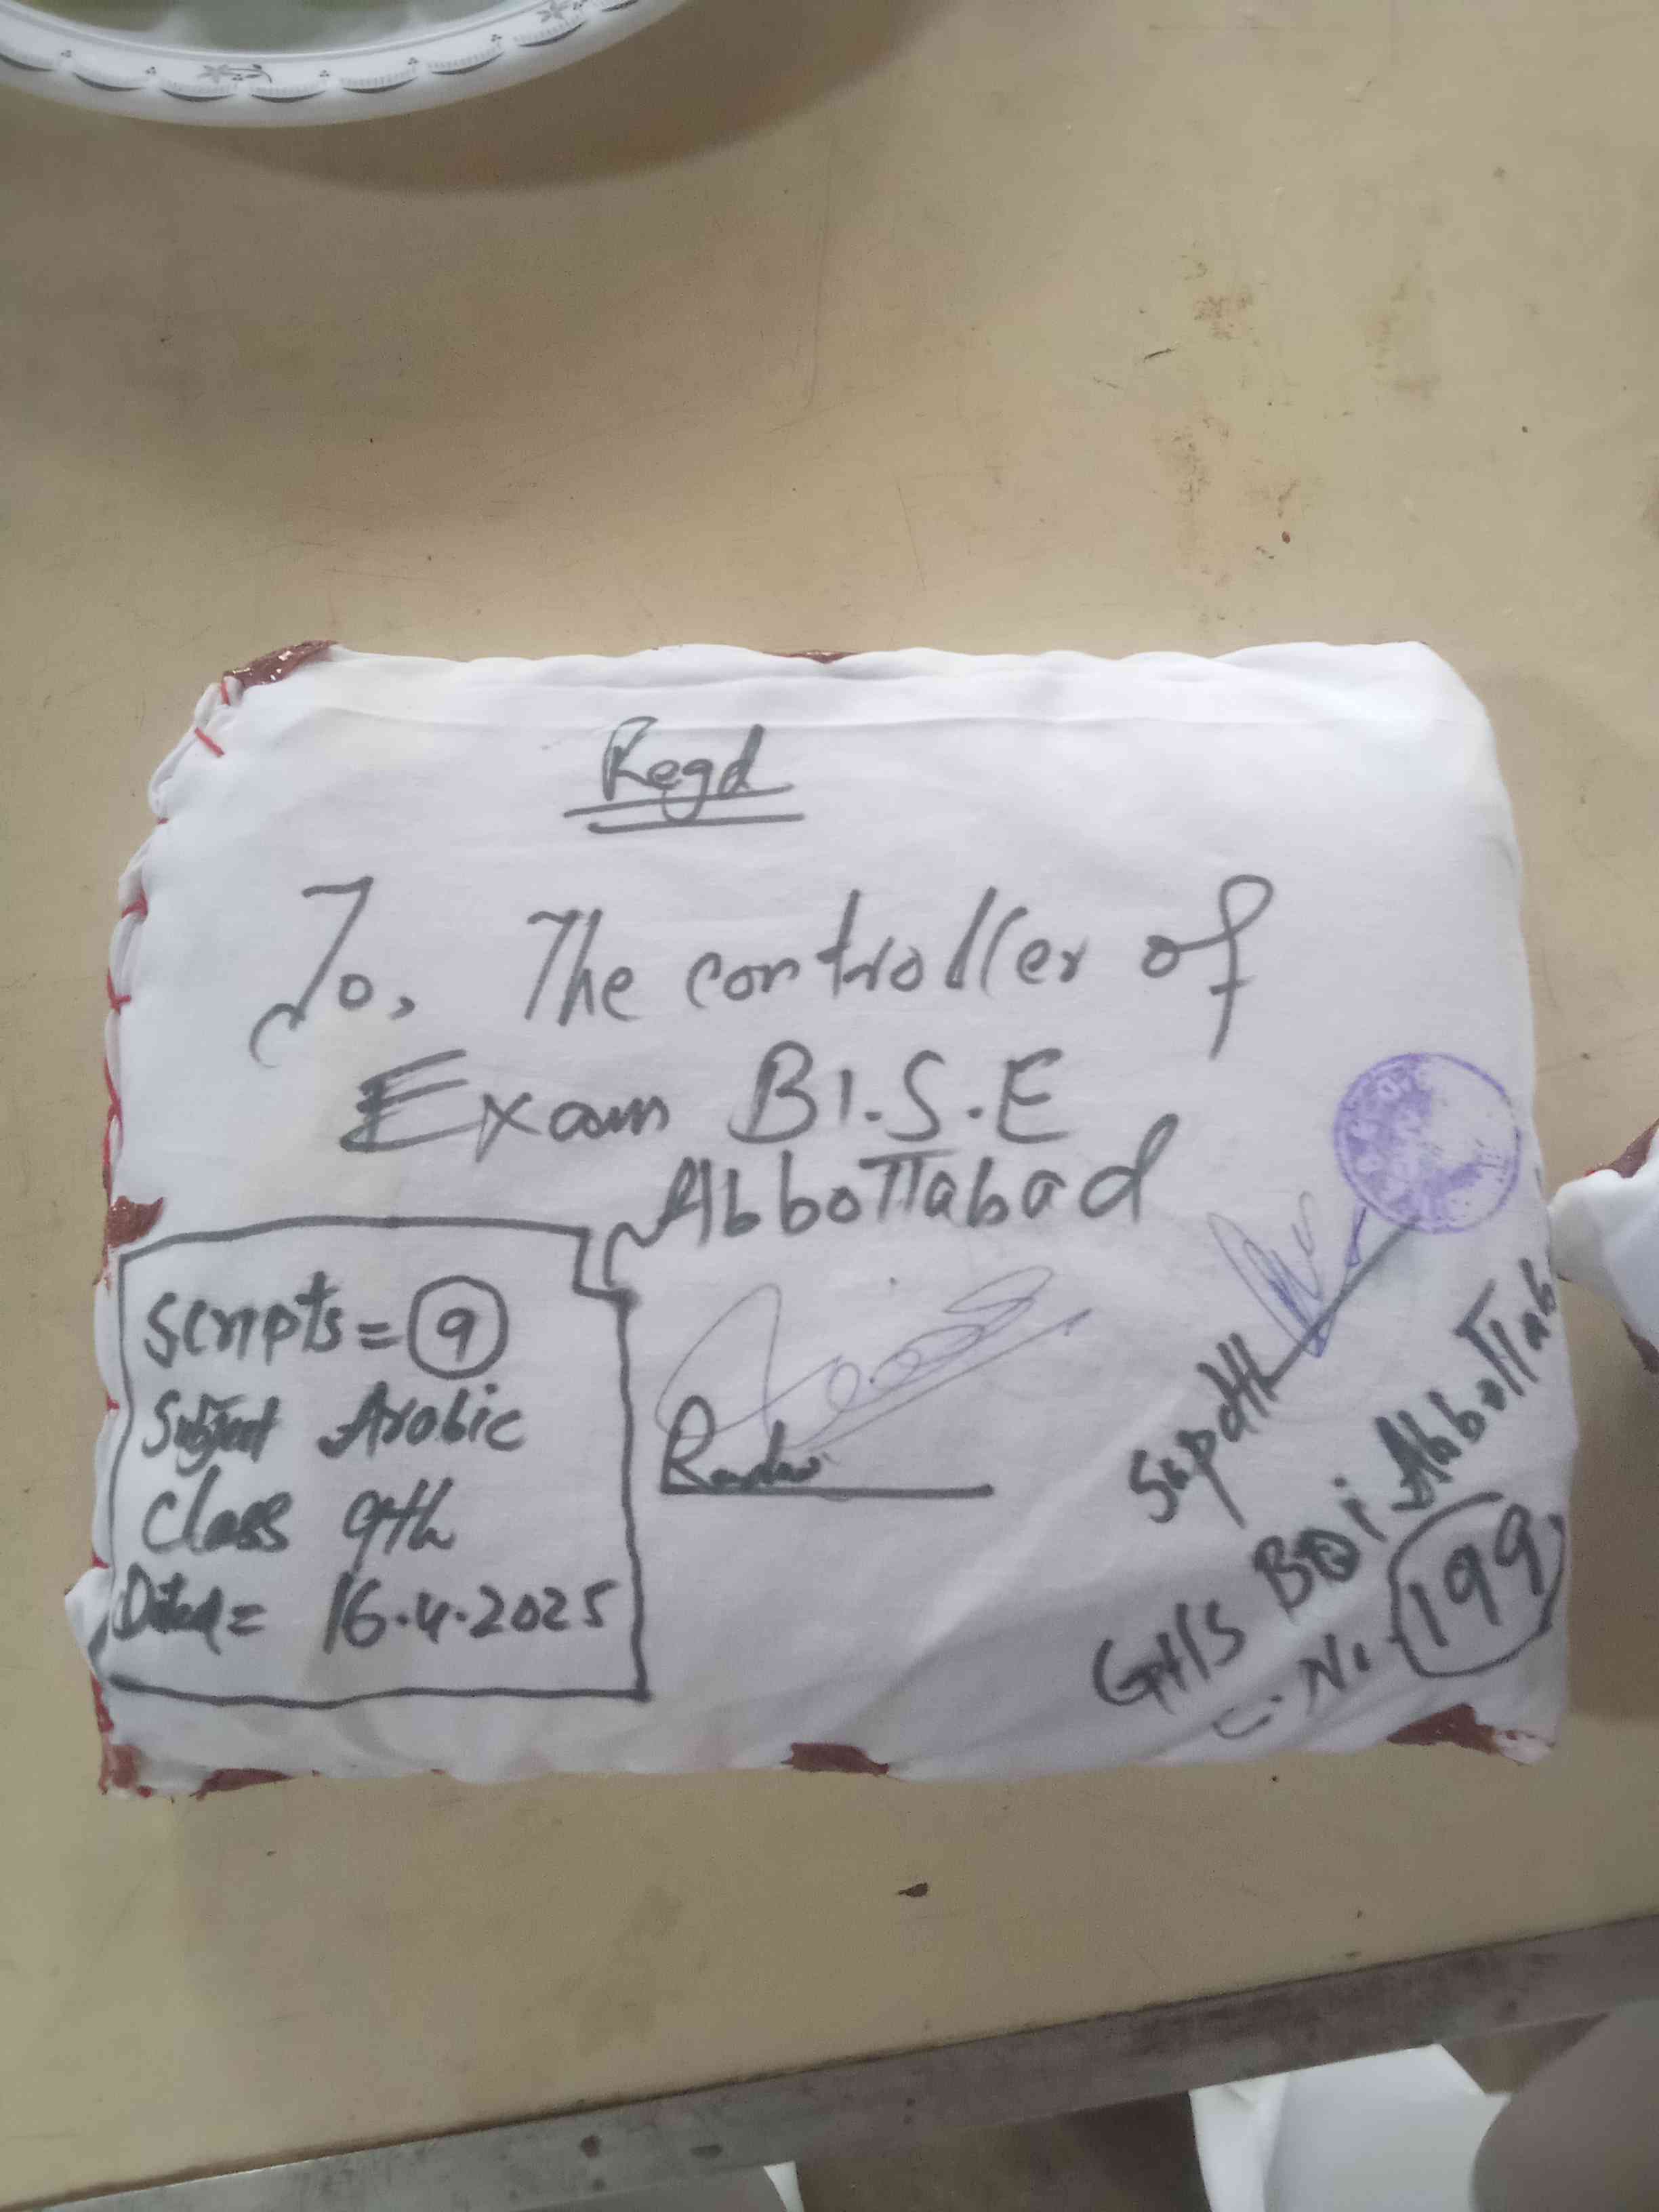 Regd
To, The controller of
Exam B I.S.E
Abbottabad
Scripts = 9
Subject Arabic
Class 9th
Dated = 16.4.2025
Supdtt
GHS Boi Abbottab
C. No. 199